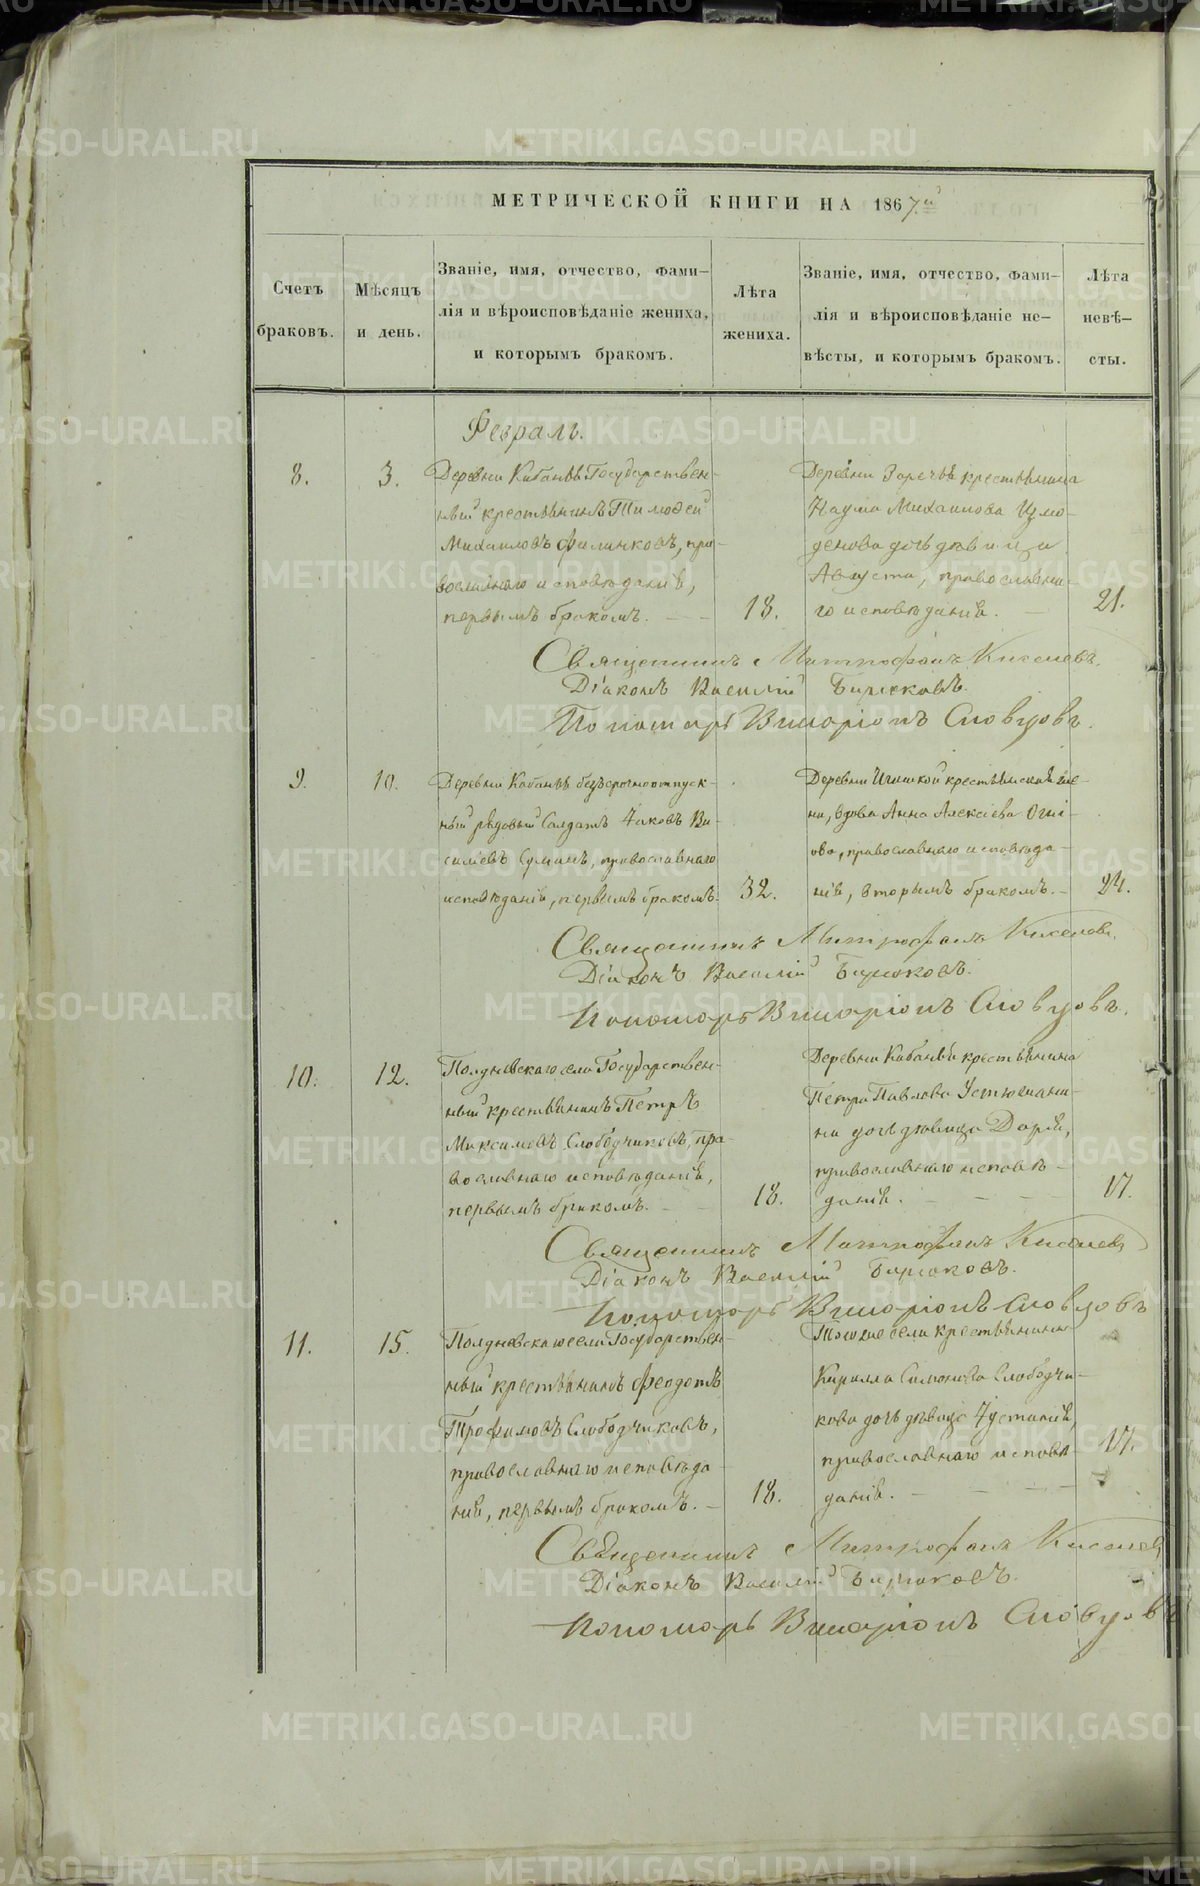 МЕТРИЧЕСКОЙ КНИГИ НА 1867й
Счетъ браковъ.
Мѣсяцъ и день.
Званіе, имя, отчество, фами-
лія и вѣроисповѣданіе жениха,
и которымъ бракомъ.
Лѣта жениха.
Званіе, имя, отчество, фами-
лія и вѣроисповѣданіе не-
вѣсты, и которымъ бракомъ.
Лѣта невѣ-
сты.
Февраль.
8.
3.
Деревни Кабаньѣ Государствен-
ный крестьянинъ Тимоѳей
Михаиловъ Филинковъ, пра-
вославнаго исповѣданія,
первымъ бракомъ.
18.
Деревни Заречья крестьянина
Наума Михаилова Измо-
денова дочь дѣвица
Августа, православна-
го исповѣданія.
21.
Священникъ Митрофанъ Киселевъ.
Діаконъ Василій Бирюковъ.
Пономарь Иларіонъ Словцовъ.
9.
10.
Деревни Кабаньѣ безсрочноотпуск-
ный рядовый Солдатъ Iаковъ Ва-
силіевъ, православнаго
исповѣданія, первымъ бракомъ.
32.
Деревни крестьянская же-
на, вдова Анна Алексіева
ова, православнаго исповѣда-
нія, вторымъ бракомъ.
24.
Священникъ Митрофанъ Киселевъ.
Діаконъ Василій Бирюковъ.
Пономарь Иларіонъ Словцовъ.
10.
12.
Полдневскаго села Государствен-
ный крестьянинъ Петръ
Максимовъ Слободчиковъ, пра-
вославнаго исповѣданія,
первымъ бракомъ.
18.
Деревни Кабаньи крестьянина
Петра Павлова Устюжани-
на дочь дѣвица Дарія,
православнаго исповѣ-
данія.
17.
Священникъ Митрофанъ Киселевъ
Діаконъ Василій Бирюковъ.
Пономарь Иларіонъ Словцовъ
11.
15.
Полдневскаго села Государствен-
ный крестьянинъ Феодотъ
Трофимовъ Слободчиковъ,
православнаго исповѣда-
нія, первымъ бракомъ.
18.
Тогоже села крестьянина
Кирилла Симонова Слободчи-
кова дочь дѣвица Iустинія,
православнаго исповѣ-
данія.
17.
Священникъ Митрофанъ Киселевъ
Діаконъ Василій Бирюковъ.
Пономарь Иларіонъ Словцовъ
METRIKI.GASO-URAL.RU